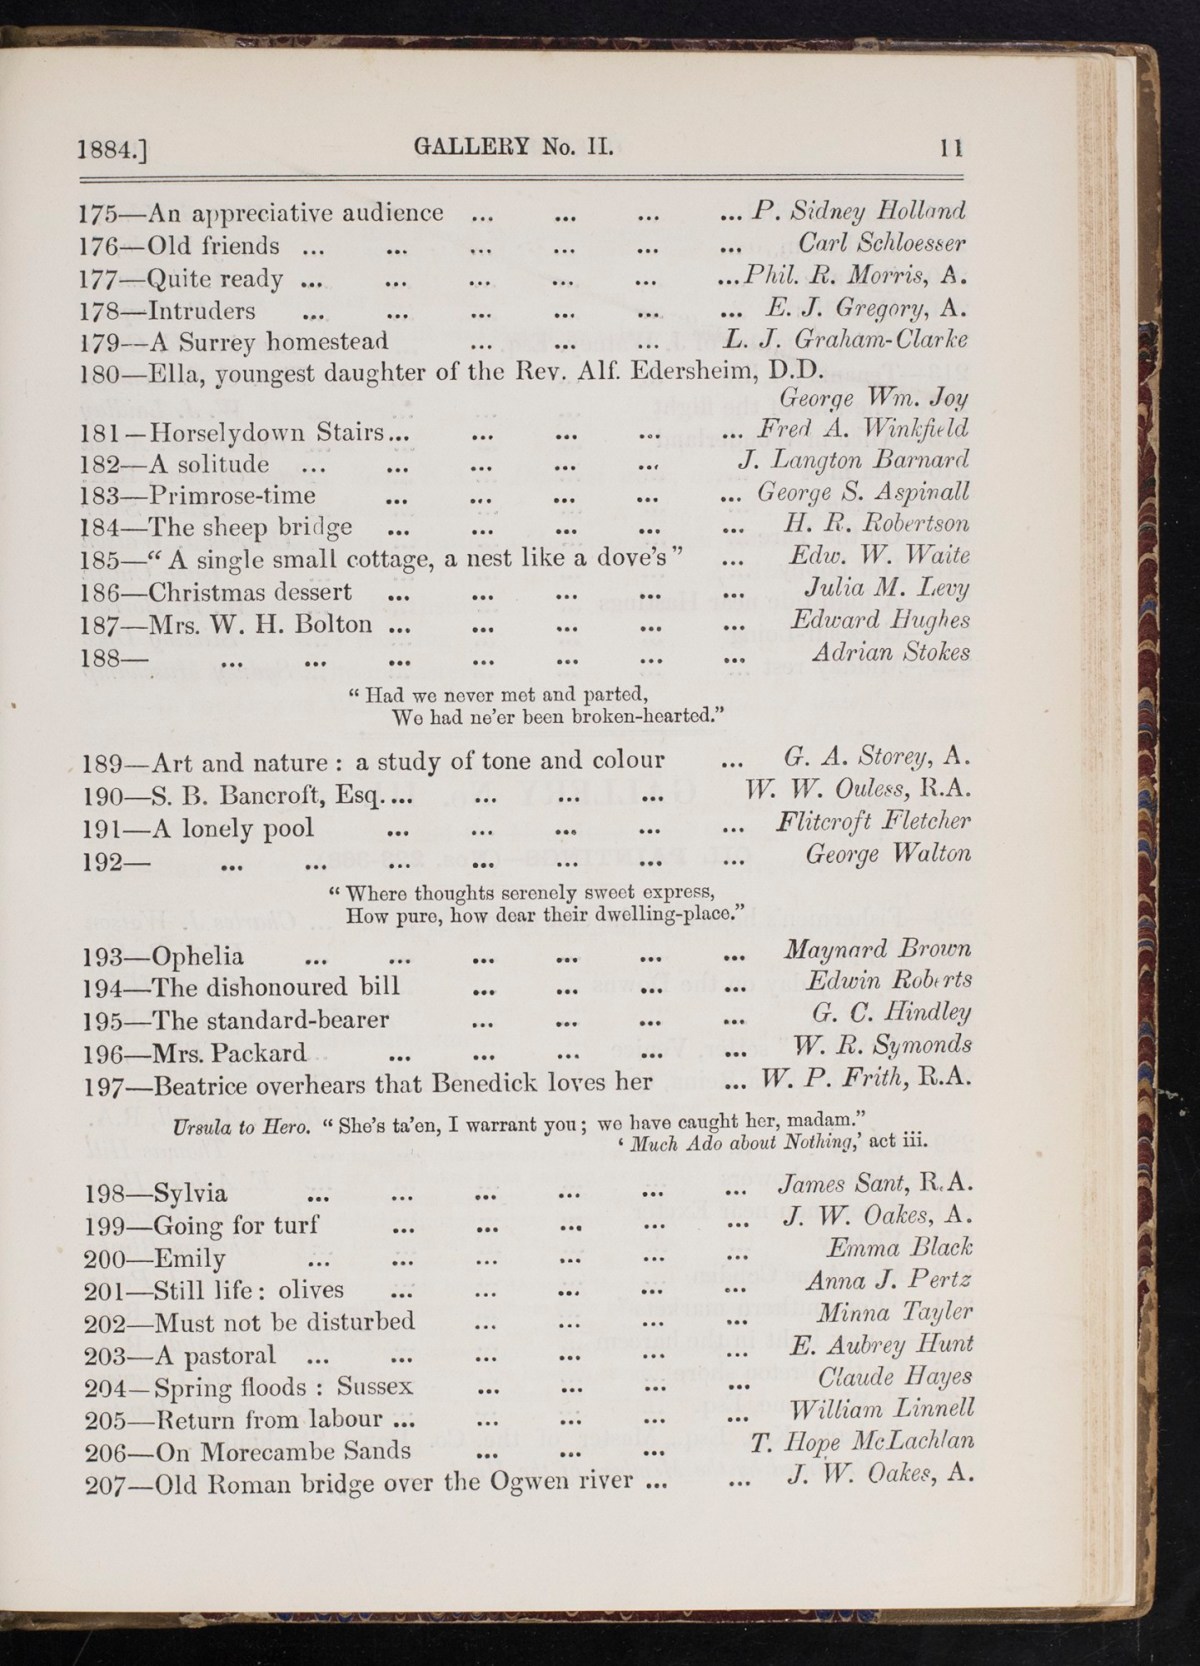 1884.] GALLERY No. II. 11
175—An appreciative audience ... ... ... ... P. Sidney Holland
176—Old friends ... ... ... ... ... ... Carl Schloesser
177—Quite ready ... ... ... ... ... ...Phil. R. Morris, A.
178—Intruders ... ... ... ... ... ... E. J. Gregory, A.
179—A Surrey homestead ... ... ... L. J. Graham-Clarke
180—Ella, youngest daughter of the Rev. Alf. Edersheim, D.D.
George Wm. Joy
181—Horselydown Stairs... ... ... ... ... Fred A. Winkfield
182—A solitude ... ... ... ... ... J. Langton Barnard
183—Primrose-time ... ... ... ... ... George S. Aspinall
184—The sheep bridge ... ... ... ... ... H. R. Robertson
185—“ A single small cottage, a nest like a dove’s ” ... Edw. W. Waite
186—Christmas dessert ... ... ... ... ... Julia M. Levy
187—Mrs. W. H. Bolton ... ... ... ... ... Edward Hughes
188— ... ... ... ... ... ... ... Adrian Stokes
“ Had we never met and parted,
We had ne’er been broken-hearted.”
189—Art and nature : a study of tone and colour ... G. A. Storey, A.
190—S. B. Bancroft, Esq.... ... ... ... W. W. Ouless, R.A.
191—A lonely pool ... ... ... ... ... Flitcroft Fletcher
192— ... ... ... ... ... ... ... George Walton
“ Where thoughts serenely sweet express,
How pure, how dear their dwelling-place.”
193—Ophelia ... ... ... ... ... ... Maynard Brown
194—The dishonoured bill ... ... ... ... Edwin Roberts
195—The standard-bearer ... ... ... ... G. C. Hindley
196—Mrs. Packard ... ... ... ... ... W. R. Symonds
197—Beatrice overhears that Benedick loves her ... W. P. Frith, R.A.
Ursula to Hero. “ She’s ta’en, I warrant you ; we have caught her, madam.”
‘ Much Ado about Nothing,’ act iii.
198—Sylvia ... ... ... ... ... ... James Sant, R.A.
199—Going for turf ... ... ... ... ... J. W. Oakes, A.
200—Emily ... ... ... ... ... ... Emma Black
201—Still life : olives ... ... ... ... ... Anna J. Pertz
202—Must not be disturbed ... ... ... ... Minna Tayler
203—A pastoral ... ... ... ... ... ... E. Aubrey Hunt
204—Spring floods : Sussex ... ... ... ... Claude Hayes
205—Return from labour ... ... ... ... ... William Linnell
206—On Morecambe Sands ... ... ... T. Hope McLachlan
207—Old Roman bridge over the Ogwen river ... ... J. W. Oakes, A.